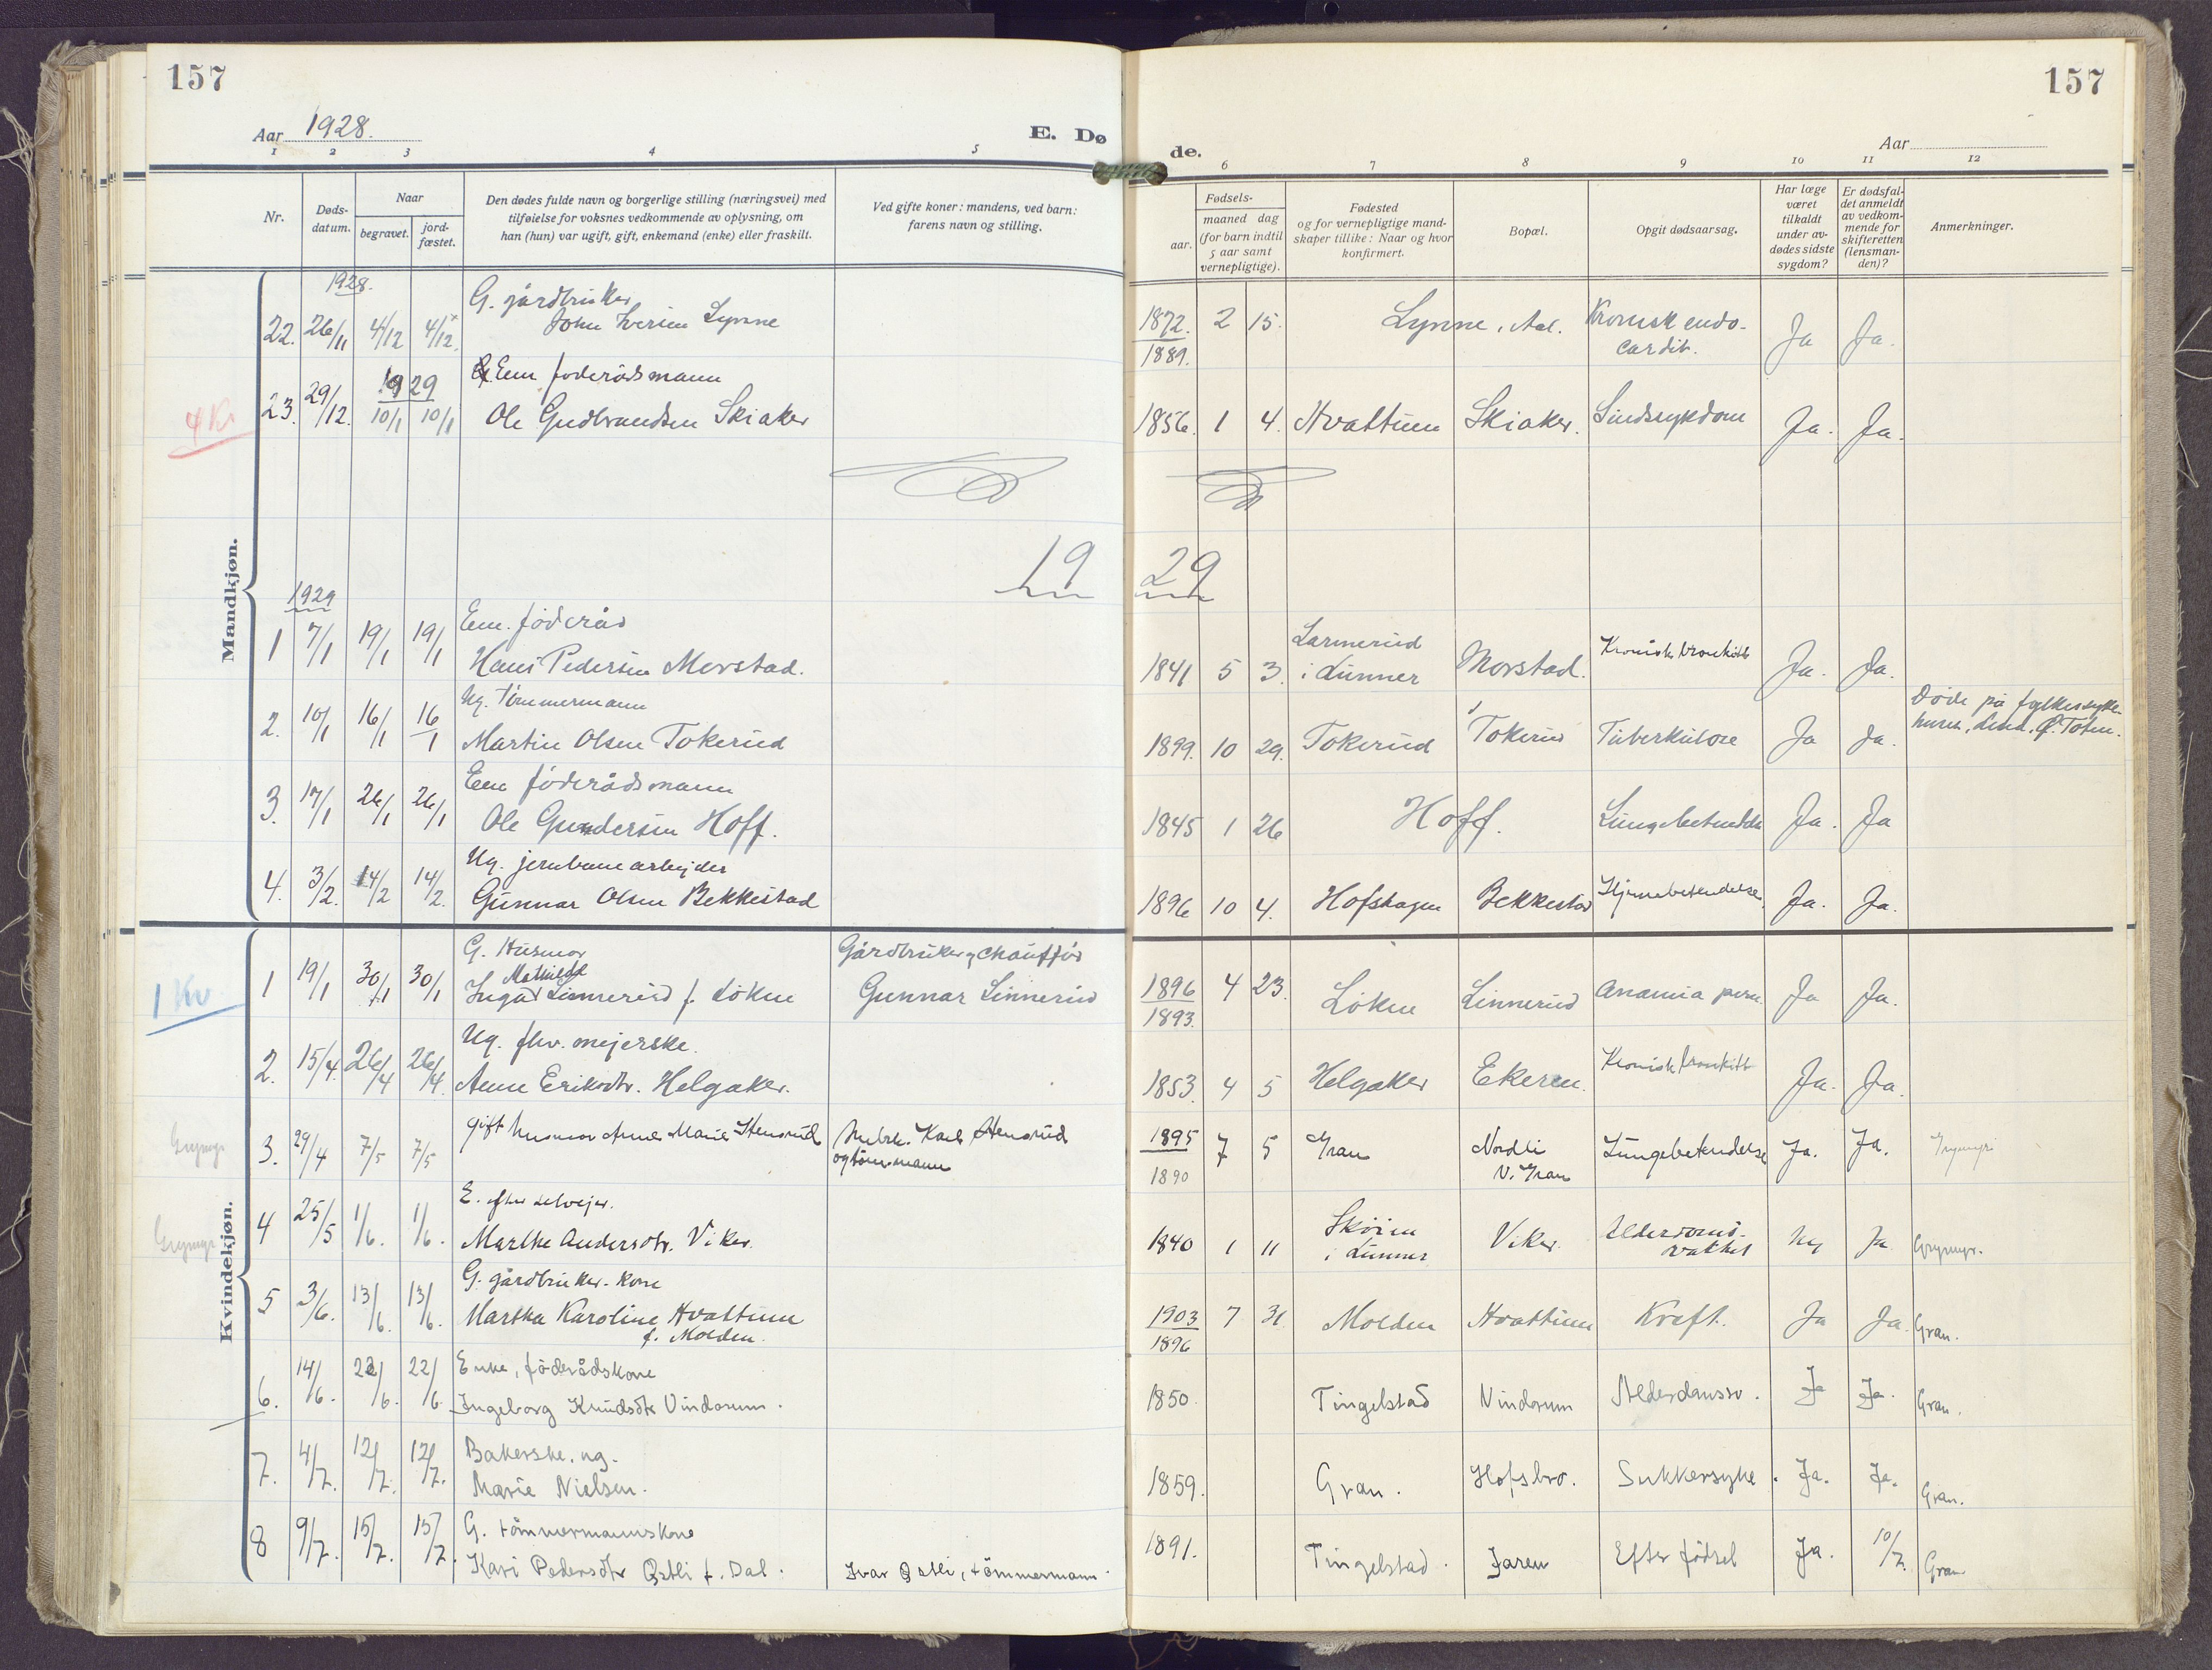 157
157
Aar 1928.
E. Dø
de.
Aar
1 2 3 4 5
6 7 8 9 10 11 12
Nr.
Døds-
datum.
Naar
begravet.
jord-
fæstet.
Den dødes fulde navn og borgerlige stilling (næringsvei) med
tilføielse for voksnes vedkommende av oplysning, om
han (hun) var ugift, gift, enkemand (enke) eller fraskilt.
Ved gifte koner: mandens, ved barn:
farens navn og stilling.
Fødsels-
aar.
maaned dag
(for barn indtil
5 aar samt
vernepligtige).
Fødested
og for vernepligtige mand-
skaper tillike: Naar og hvor
konfirmert.
Bopæl.
Opgit dødsaarsag.
Har læge
været
tilkaldt
under av-
dødes sidste
sygdom?
Er dødsfal-
det anmeldt
av vedkom-
mende for
skifteretten
(lensman-
den)?
Anmerkninger.
Mandkjøn.
1928.
G. gårdbruker
22. 26/11 4/12 4/12. John Iversen Lynne 1872. 2 15. Lynne, Aal. Kronisk endo-
1889. cardit. Ja Ja.
Em føderådsmann
1929
4 Kr
23. 29/12. 10/1 10/1 Ole Gudbrandsen Skiaker 1856. 1 4. Hvattum Skiaker. Sindssykdom Ja. Ja.
19 29
1929
Em. føderåd
1 7/1 19/1 19/1 Hans Pedersen Morstad. 1841 5 3. Larmerud
i Lunner Morstad. Kronisk bronkitt Ja. Ja.
Ug. tømmermann
2. 10/1 16/1 16/1 Martin Olsen Tokerud 1899. 10 29. Tokerud Tokerud Tuberkulose Ja Ja. Døde på fylkessyke-
huset, Toten.
Em føderådsmann
3. 17/1 26/1 26/1 Ole Gundersen Hoff. 1845 1 26 Hoff. Lungebetendelse Ja. Ja
Ug. jernbanearbejder
4. 3/2. 14/2 14/2. Gunnar Olsen Bekkestad 1896 10 4. Hofshagen Bekkestad Hjernebetendelse. Ja. Ja.
Kvindekjøn.
G. Husmor Gårdbruker og chauffør
Mathilde
1 Kv.
1 19/1 30/1 30/1 Inga Linnerud f. Løken Gunnar Linnerud 1896 4 23. Løken Linnerud Anæmia pern. Ja Ja.
1893.
Ug. fhv. mejerske.
2. 15/4. 26/4 26/4. Anne Eriksdtr. Helgaker. 1853. 4 5 Helgaker Ekeren. Kronisk bronkitt Ja. Ja.
3. 29/4 7/5 7/5 gift husmor Anne Marie Stensrud Karl Stensrud
og tømmermann
1895 7 5 Gran Nordli
V. Gran Lungebetendelse Ja. Ja. Grymyr
1890
E. efter selvejer.
Grymyr
4 25/5 1/6. 1/6. Marthe Andersdtr. Viker. 1840 1 11 Skøien
i Lunner Viker. Alderdoms-
svakhet Nej Ja Grymyr.
G. gårdbruker. kone
5 3/6. 13/6. 13/6. Martha Karoline Hvattum
f. Molden.
1903 7 31 Molden Hvattum Kreft. Ja Ja. Gran.
1896
Enke, føderådskone
6. 14/6. 22/6. 22/6. Ingeborg Knudsdtr Vindorum. 1850. Tingelstad Vindorum Alderdomssv. Ja Ja. Gran.
Bakerske. ug.
7. 4/7. 12/7. 12/7. Marie Nielsen. 1859. Gran. Hofsbro. Sukkersyke. Ja. Ja. Gran.
G. tømmermannskone
8 9/7. 15/7. 15/7. Kari Pedersdtr Østli f. Dal. Ivar Østli, tømmermann. 1891. Tingelstad. Jaren Efter fødsel Ja. 10/7. Gran